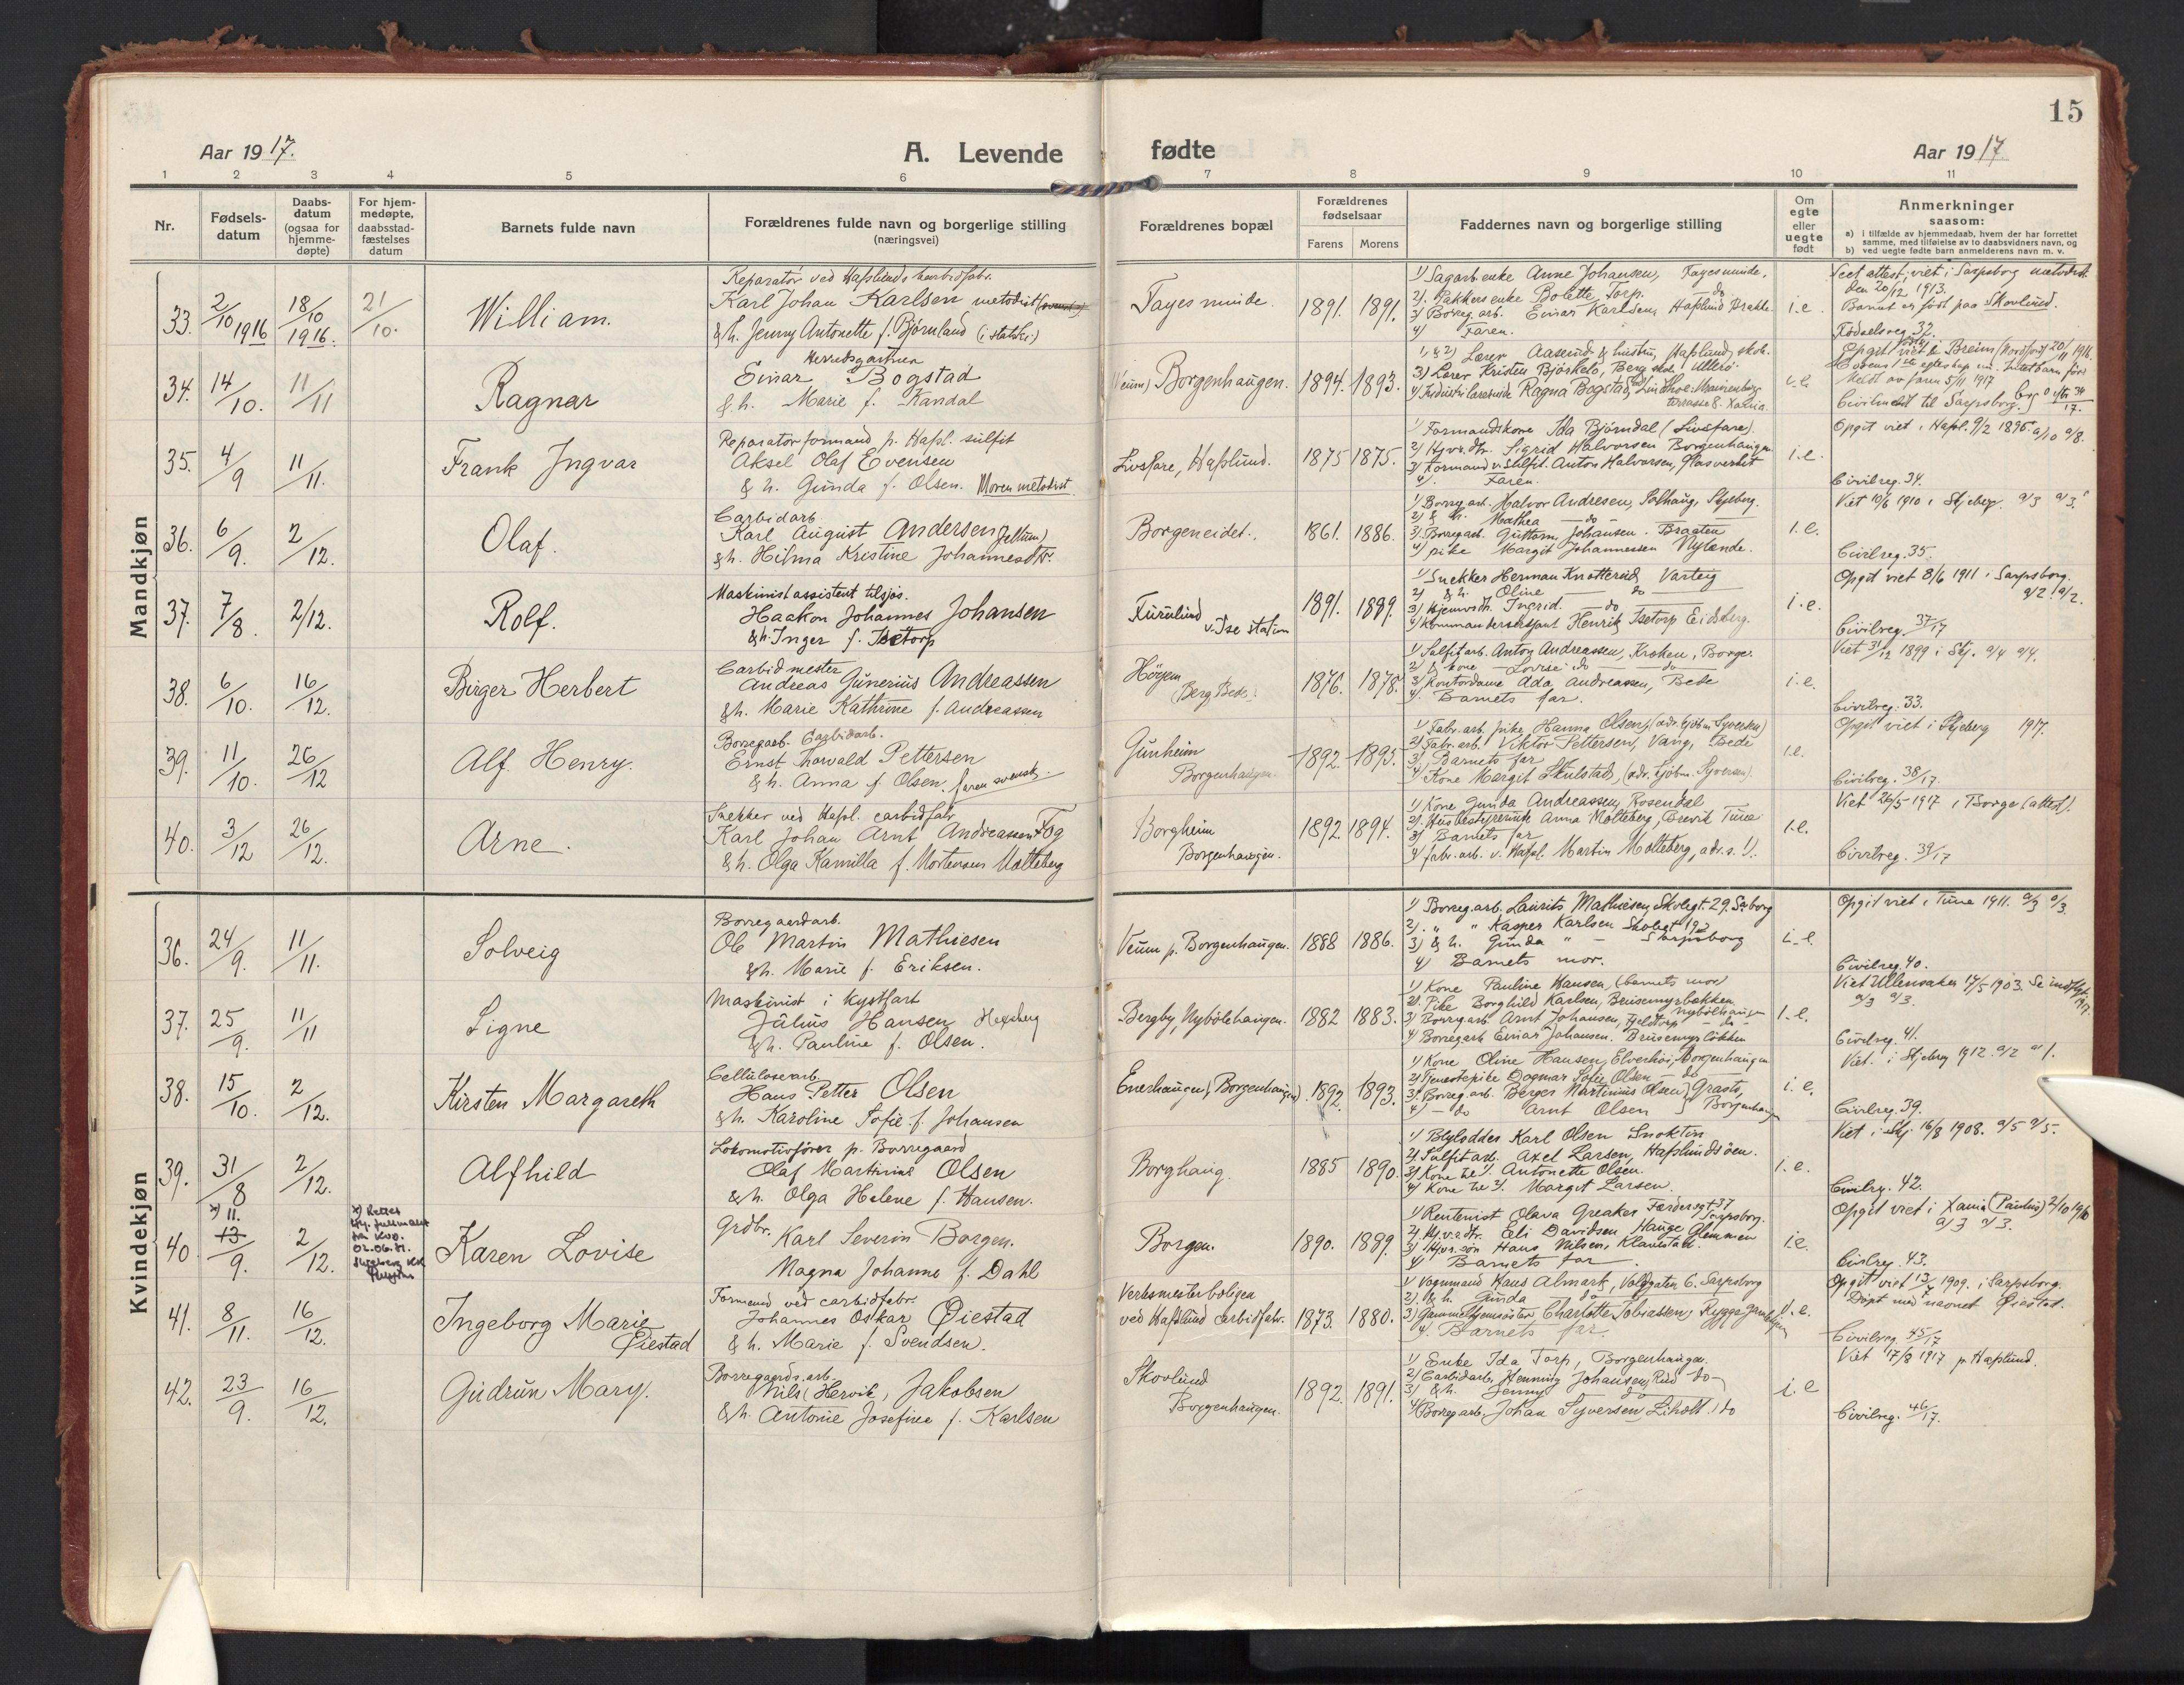 15
Aar 1917.
A. Levende
fødte
Aar 1917
1 2 3 4 5 6 7 8 9 10 11
Nr.
Fødsels-
datum
Daabs-
datum
(ogsaa for
hjemme-
døpte)
For hjem-
medøpte,
daabsstad-
fæstelses
datum
Barnets fulde navn
Forældrenes fulde navn og borgerlige stilling
(næringsvei)
Forældrenes bopæl
Forældrenes
fødselsaar
Farens Morens
Faddernes navn og borgerlige stilling
Om
egte
eller
uegte
født
Anmerkninger
saasom:
a) i tilfælde av hjemmedaab, hvem der har forrettet
samme, med tilføielse av to daabsvidners navn, og
b) ved uegte fødte barn anmelderens navn m. v.
Mandkjøn
33. 2/10 1916 18/10 1916. 21/10. William.
Reparatør ved Hafslunds karbidfabr.
Karl Johan Karlsen metodist
& h. Jenny Antonette f. Bjørnland (i statski)
1891. 1891.
1) Sagarb. enke Anne Johansen,
2). Pakkers enke Bolette Torp. do
3) Borreg. arb. Einar Karlsen, Hafslund
4) Faren.
i.e.
den 20/12 1913.
Barnet er født paa Skovlund.
Fødselsreg. 32.
34. 14/10. 11/11 Ragnar
Einar Bogstad
& h. Marie f. Kandal
Borgenhaugen. 1894. 1893.
1) & 2) Lærer Aaserud & hustru, Hafslund skole.
3) Lærer Kristen Bjørkelo, Berg skole, Ullerø.
Opgit viet i Breim (Nordfjord) 20/11 1916.
Meldt av faren 5/11 1917
35. 4/9 11/11. Frank Ingvar
Reparatør formand p. Hafl. sulfit
Aksel Olaf Evensen
& h. Gunda f. Olsen. Moren metodist.
Livsfare, Hafslund. 1875 1875.
1) Formandskone Ida Bjørndal (Livsfare).
2) Hjv. dtr. Sigrid Halvorsen Borgenhaugen
3) Formand v. Sulfit. Anton Halvorsen, Glasverket
4). Faren.
i.e.
Opgit viet i Hafsl. 9/2 1895
Civilreg. 34.
36. 6/9. 2/12. Olaf.
Carbidarb
Karl August Andersen
& h. Hilma Kristine Johannesdtr.
Borgeneidet. 1861. 1886.
1) Borreg arb. Halvor Andresen, Solhaug, Skjeberg.
2) & h. Mathea do
3) Borreg arb. Guttorm Johansen. Braaten
4) pike Margit Johannessen Nylende.
i.e.
Viet 12/6 1910 i Skjeberg.
Civilreg. 35.
37. 7/8. 2/12. Rolf.
Maskinist assistent tilsjøs.
Haakon Johannes Johansen
& h. Inger f. Isetorp
Furulund
v. Ise station
1891. 1889.
1) Snekker Herman Knatterud, Varteig
2) & h. Oline do
3) Hjemv. dtr. Ingrid. do
4) Kommandersersjant Henrik Isetorp Eidsberg.
i.e.
Opgit viet 8/6 1911 i Sarpsborg.
Civilreg. 37/17
38. 6/10. 16/12. Birger Herbert
Carbidmester
Andreas Gunerius Andreassen
& h. Marie Kathrine f. Andreassen
Høgen
(Berg Bede)
1876. 1878.
1) Sulfitarb. Anton Andreassen, Kroken, Borge.
2) & kone Lovise do do
3) Kontordame Ada Andreassen, Bede
4) Barnets far.
i.e.
Viet 31/12 1899 i Skj. 9/4 9/4.
Civilreg. 33.
39. 11/10. 26/12 Alf Henry.
Borregaarb. Carbidarb.
Ernst Thorvald Pettersen
& h. Anna f. Olsen. faren svensk.
Gunheim
Borgenhaugen.
1892. 1895.
1) Fabr. arb. pike Hanna Olsen,
2) Fabr. arb. Viktor Pettersen, Vang, Bede
3) Barnets far
4) Kone Margit Skulstad,
i.e.
Opgit viet i Skjeberg 1917.
Civilreg. 38/17.
40. 3/12 26/12. Arne.
Snekker ved Hafsl. carbidfabr
Karl Johan Arnt Andreassen Fog
& h. Olga Kamilla f. Mortensen Molteberg
Borgheim
Borgenhaugen.
1892 1894.
1) Kone Gunda Andreassen, Rosendal
2). Husbestyrerinde Anna Molteberg, Grevik Tune
3) Barnets far
4) fabr. arb. v. Hafsl. Martin Molteberg, adr. s. 1).
i.e.
Viet 26/5 1917 i Borge (attest).
Civilreg. 39/17
Kvindekjøn
36. 24/9. 11/11. Solveig
Borregaardarb.
Ole Martin Mathiesen
& h. Marie f. Eriksen.
Veum p. Borgenhaugen. 1888 1886.
1) Borreg. arb. Laurits Mathiesen, Skolegt. 29. Sarborg
2). " " Kasper Karlsen Skolegt 19
3) & h. Gunda " - Sarpsborg
4) Barnets mor.
i.e.
Opgit viet i Tune 1911. 9/3 9/3.
Civilreg. 40.
37. 25/9. 11/11 Signe
Maskinist i kystfart
Julius Hansen
& h. Pauline f. Olsen.
Bergby, Nybølehaugen. 1882 1883.
1) Kone Pauline Hansen, (barnets mor)
2). Pike Borghild Karlsen, Brusemyrbakken, Nybølehaugen
3) Borreg arb. Arnt Johansen, Fjeldtorp do
4) Borregarb Einar Johansen. Brusemyrløkken
i.e.
Viet Ullensaker 17/5 1903.
Civilreg. 41.
38. 15/10. 2/12. Kirsten Margareth
Cellulosearb.
Hans Petter Olsen
& h. Karoline Sofie f. Johansen
Enerhaugen, (Borgenhaugen). 1892. 1893.
1) Kone Oline Hansen, Elverhøi, Borgenhaugen
2) Tjenestepike Dagmar Sofie Olsen do
3). Borreg. arb. Berger Martinius Olsen
4) - do Arnt Olsen } Borgenhaugen
i.e.
Viet. i Skjeberg 1912.
Civilreg. 39.
39. 31/8 2/12. Alfhild
Lokomotivfører p. Borregaard
Olaf Martinius Olsen
& h. Olga Helene f. Hansen.
Borghaug. 1885 1890.
1) Karl Olsen
2). Sulfitarb. Axel Larsen, Hafslundsøen.
3) Kone til 1). Antonette Olsen.
4) Kone til 2). Margit Larsen.
i.e.
Viet i Skj. 16/8 1908. 9/5 9/5.
Civilreg. 42.
40 x) 11. 13/9. 2/12.
x) Rettet
02.06.81.
Karen Lovise
Grdbr. Karl Severin Borgen.
Magna Johanne f. Dahl
Borgen. 1890. 1889.
1) Rentenist Olava Greaker Færdersgt 37 Sarpsborg.
2). Hjv. edtr. Eli Davidsen, Hauge Glemmen
3) Hjv. søn Hans Nilsen, Klavestad.
4) Barnets far.
i.e.
Opgit viet i Xania (Paulus) 2/10 1916
9/3 9/3.
Civilreg. 43.
41. 8/11. 16/12. Ingeborg Marie
Øiestad
Formand ved carbidfabr.
Johannes Oskar Øiestad
& h. Marie f. Svendsen.
Verksmesterboligen
ved Hafslund carbidfabr.
1873. 1880.
1) Vognmand Hans Almark, Voldgaten 6. Sarpsborg
2). & h. Gunda do
3) Charlotte Tobiassen, Rygge
4). Barnets far.
i.e.
Opgit viet 13/7 1909. i Sarpsborg.
Døpt med navnet Øiestad.
Civilreg. 45/17
42. 23/9. 16/12. Gudrun Mary.
Borregaards. arb.
Nils (Hervik) Jakobsen
& h. Antonie Josefine f. Karlsen
Skovlund
Borgenhaugen.
1892. 1891.
1) Enke Ida Torp, Borgenhaugen.
2) Carbidarb. Henning Johansen, Rud do
3) & h. Jenny do
4) Borreg arb. Johan Syversen Liholt. do
i.e
Viet 17/8 1917 p. Hafslund.
Civilreg. 46/17.